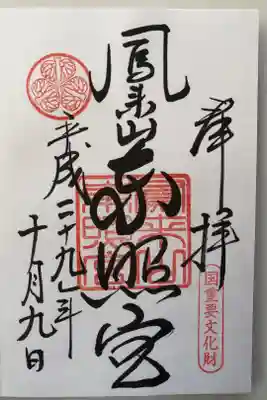 奉拝
国重要文化財
鳳来山東照宮
平成二十九年
十月九日